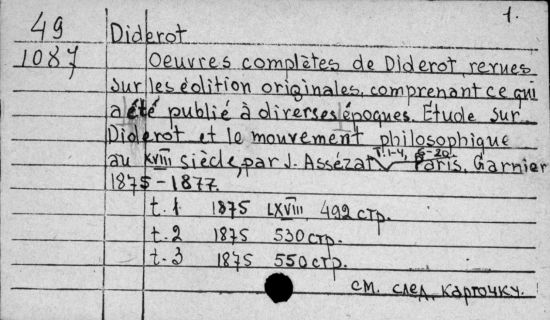 1.
49 Diderot
1087 Oeuvres complètes de Diderot, revues
sur les édition originales, comprenant ce qui
a été publié à diverses époques. Étude sur
Diderot et le mouvement philosophique
au XVIII siècle, par J. Assézat T. 1-4, 6-20 Paris, Garnier
1875-1877.
t. 1 1875 LXVIII, 492 стр.
t. 2 1875 530 стр.
t. 3 1875 550 стр.
см. след. карточку.